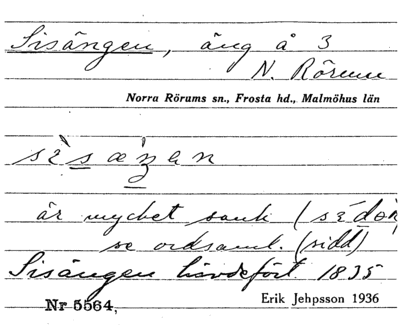 Sisängen, äng å 3
N. Rörum
Norra Rörums sn., Frosta hd., Malmöhus län
är mycket sank (
se ordsaml. (sidd)
Sisängen hävdefört 1835
Nr 5564, Erik Jehpsson 1936